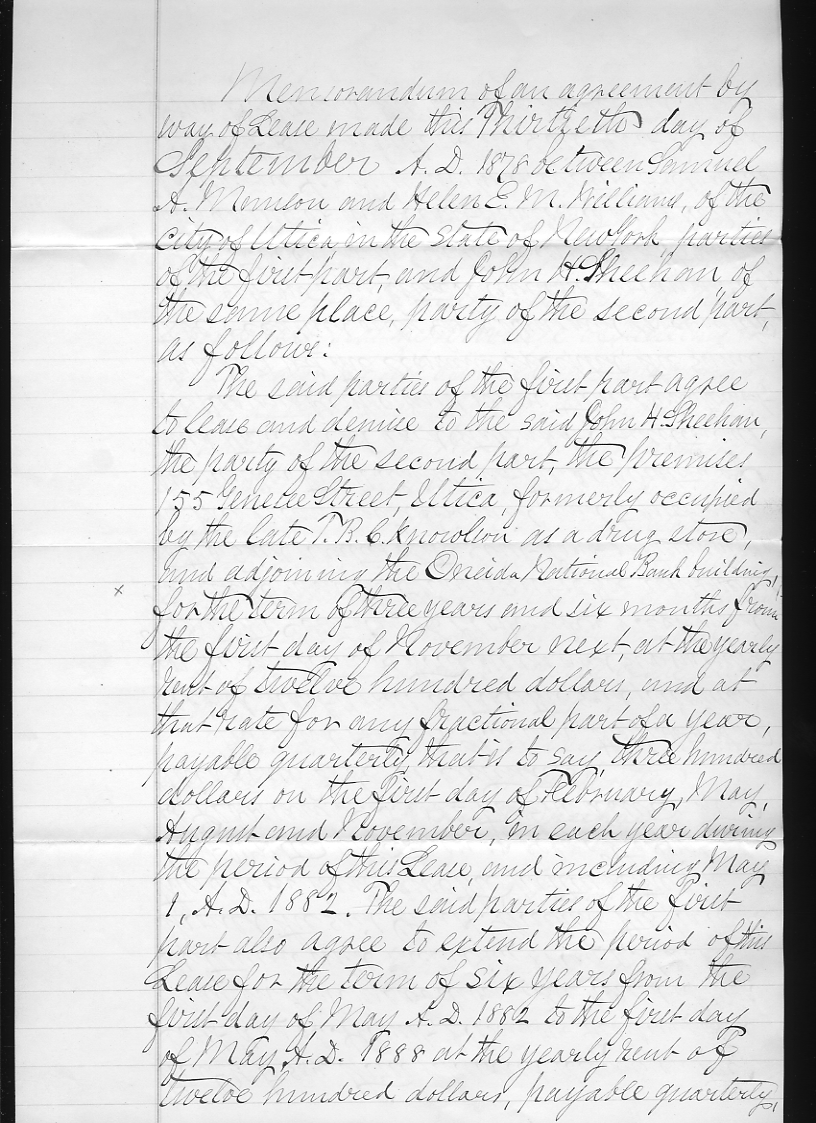 Memorandum of an agreement by
way of Lease made this Thirtieth day of
September A. D. 1878 between Samuel
A. Munson and Helen E. M. Williams, of the
city of Utica in the State of New York, parties
of the first part, and John H. Sheehan, of
the same place, party of the second part,
as follows:
The said parties of the first part agree
to lease and demise to the said John H. Sheehan,
the party of the second part, the premises
155 Genesee Street, Utica, formerly occupied
by the late T. B. C. Knowlson as a drug store,
and adjoining the Oneida National Bank building,
x
for the term of three years and six months from
the first day of November next, at the yearly
rent of twelve hundred dollars, and at
that rate for any fractional part of a year,
payable quarterly, that is to say, three hundred
dollars on the first day of February, May,
August and November, in each year during
the period of this Lease, and including May
1, A. D. 1882. The said parties of the first
part also agree to extend the period of this
Lease for the term of six years from the
first day of May A. D. 1882 to the first day
of May A. D. 1888 at the yearly rent of
twelve hundred dollars, payable quarterly,